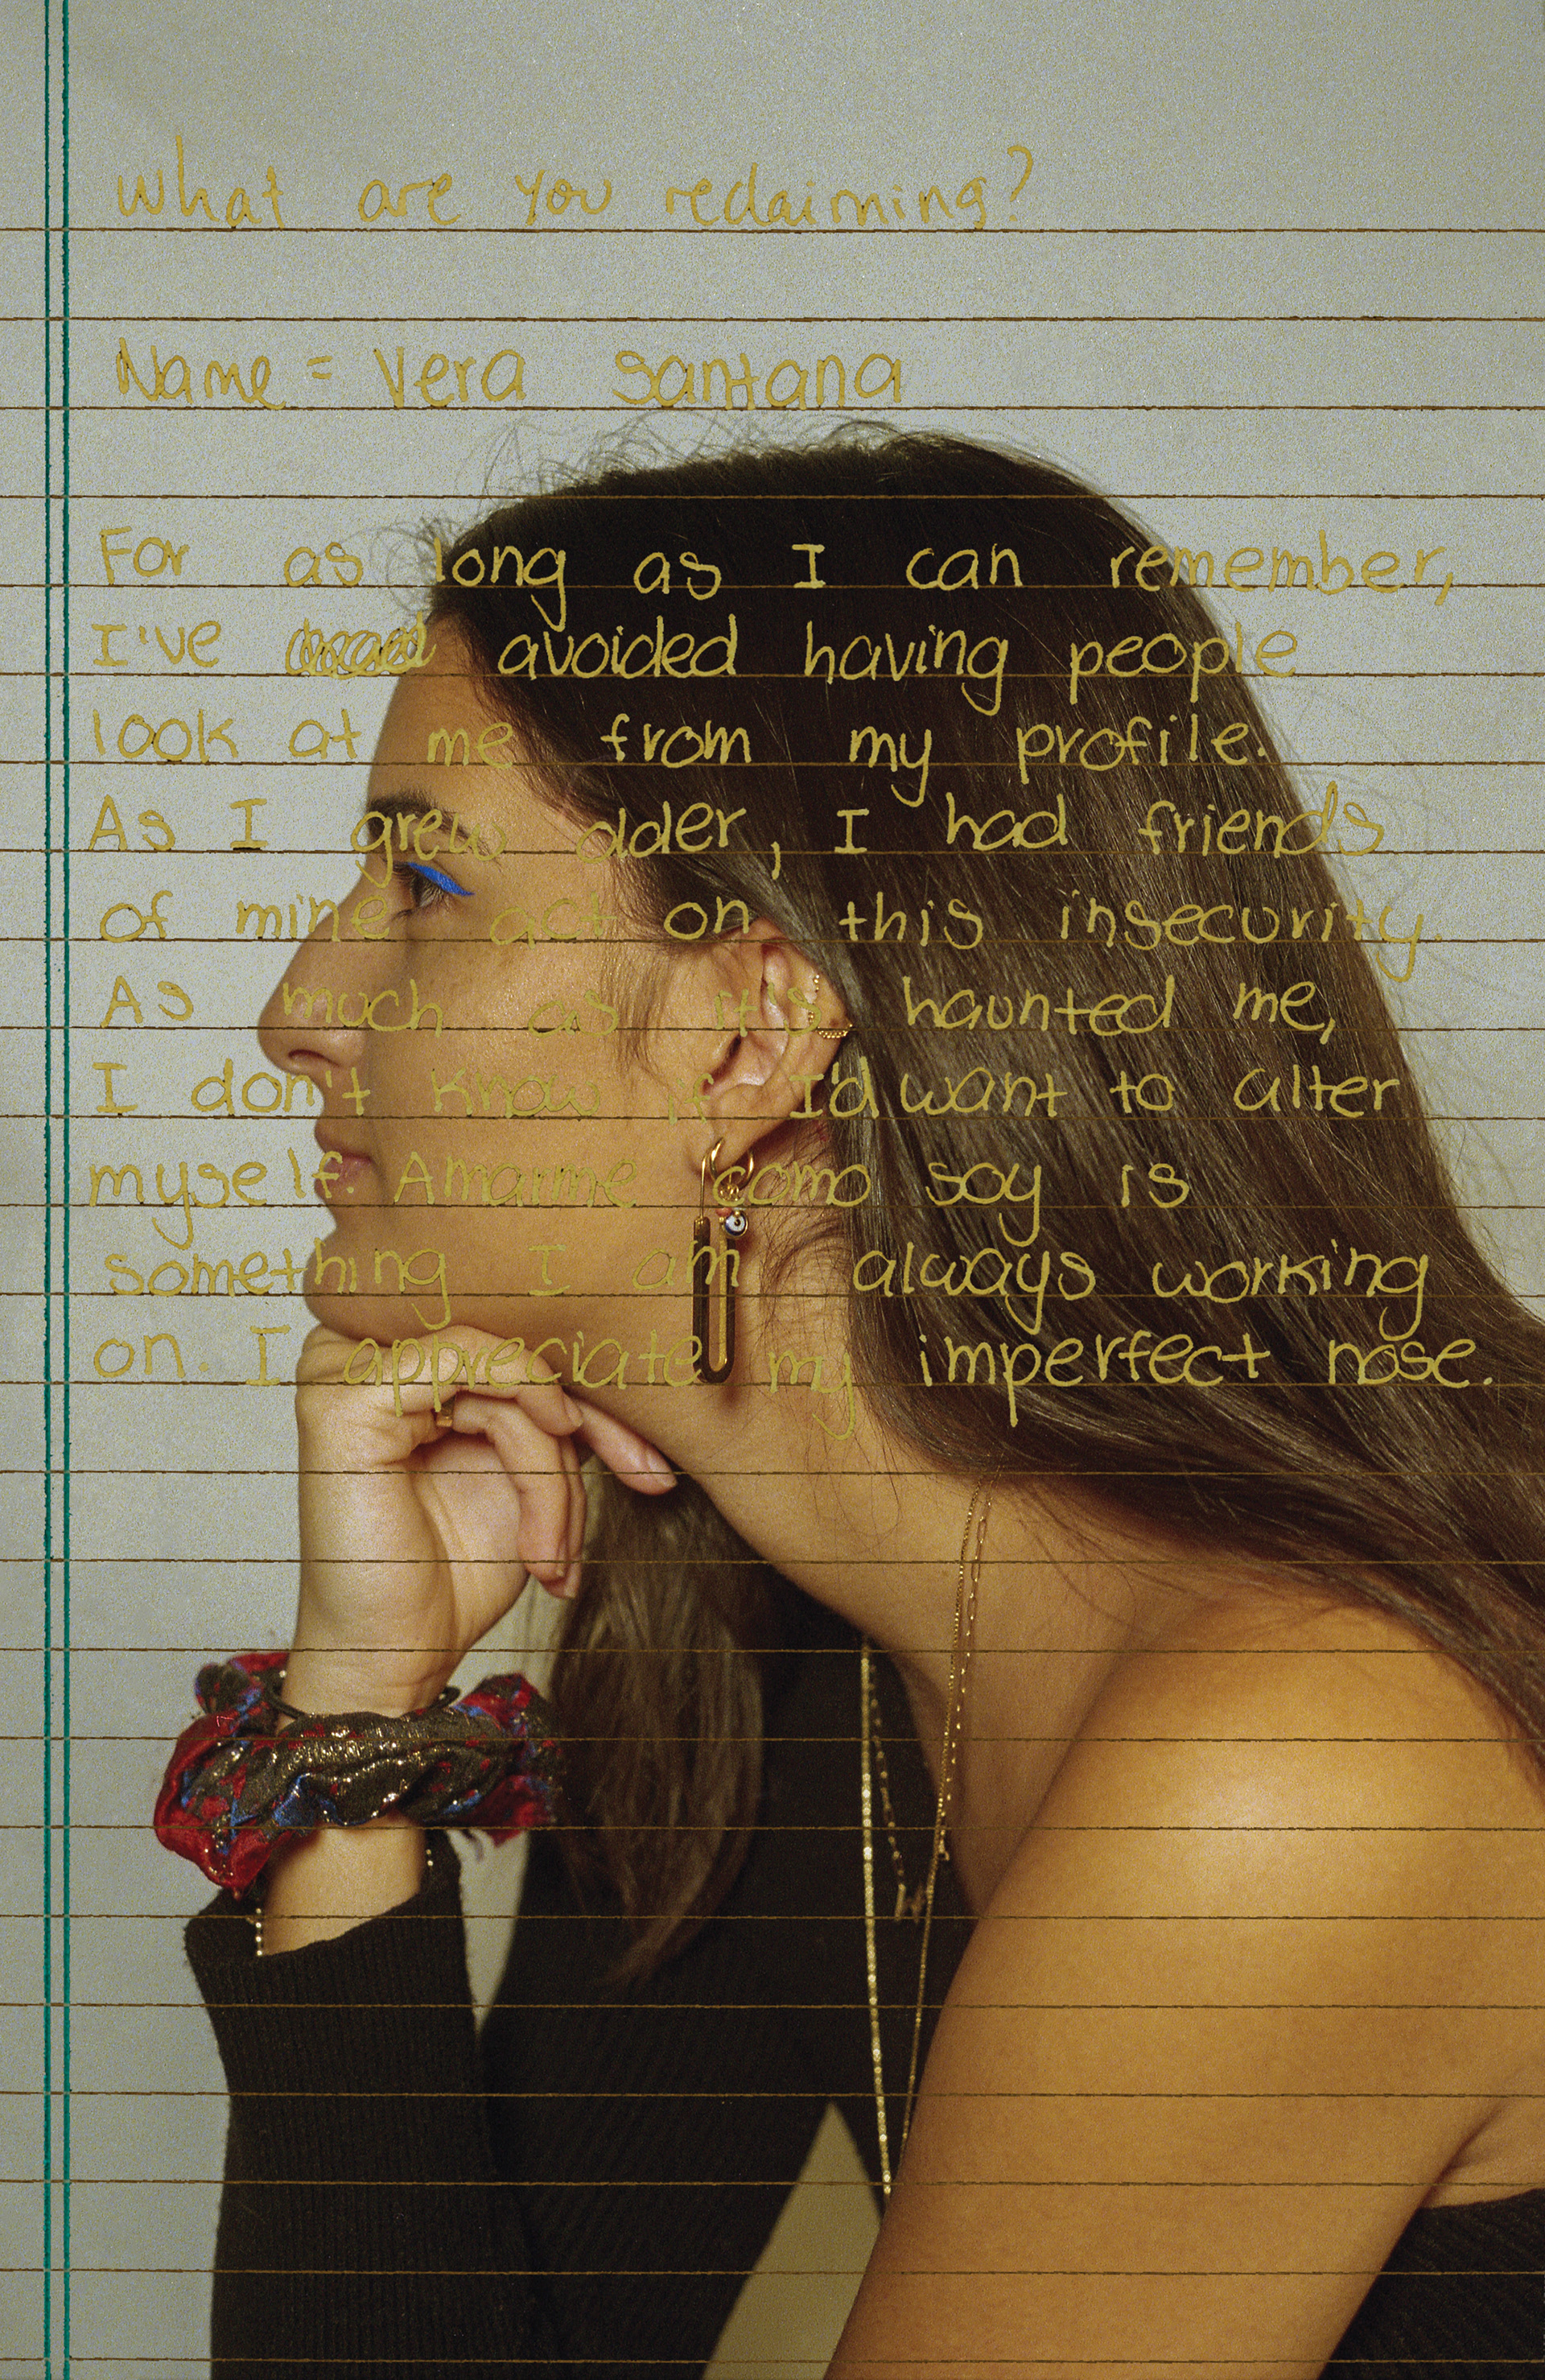 What are you reclaiming?
Name = Vera Santana
For as long as I can remember,
I've avoided having people
look at me from my profile.
As I grew older, I had friends
of mine act on this insecurity.
As much as it's haunted me,
I don't know if I'd want to alter
myself. Amarme como soy is
something I am always working
on. I appreciate my imperfect nose.